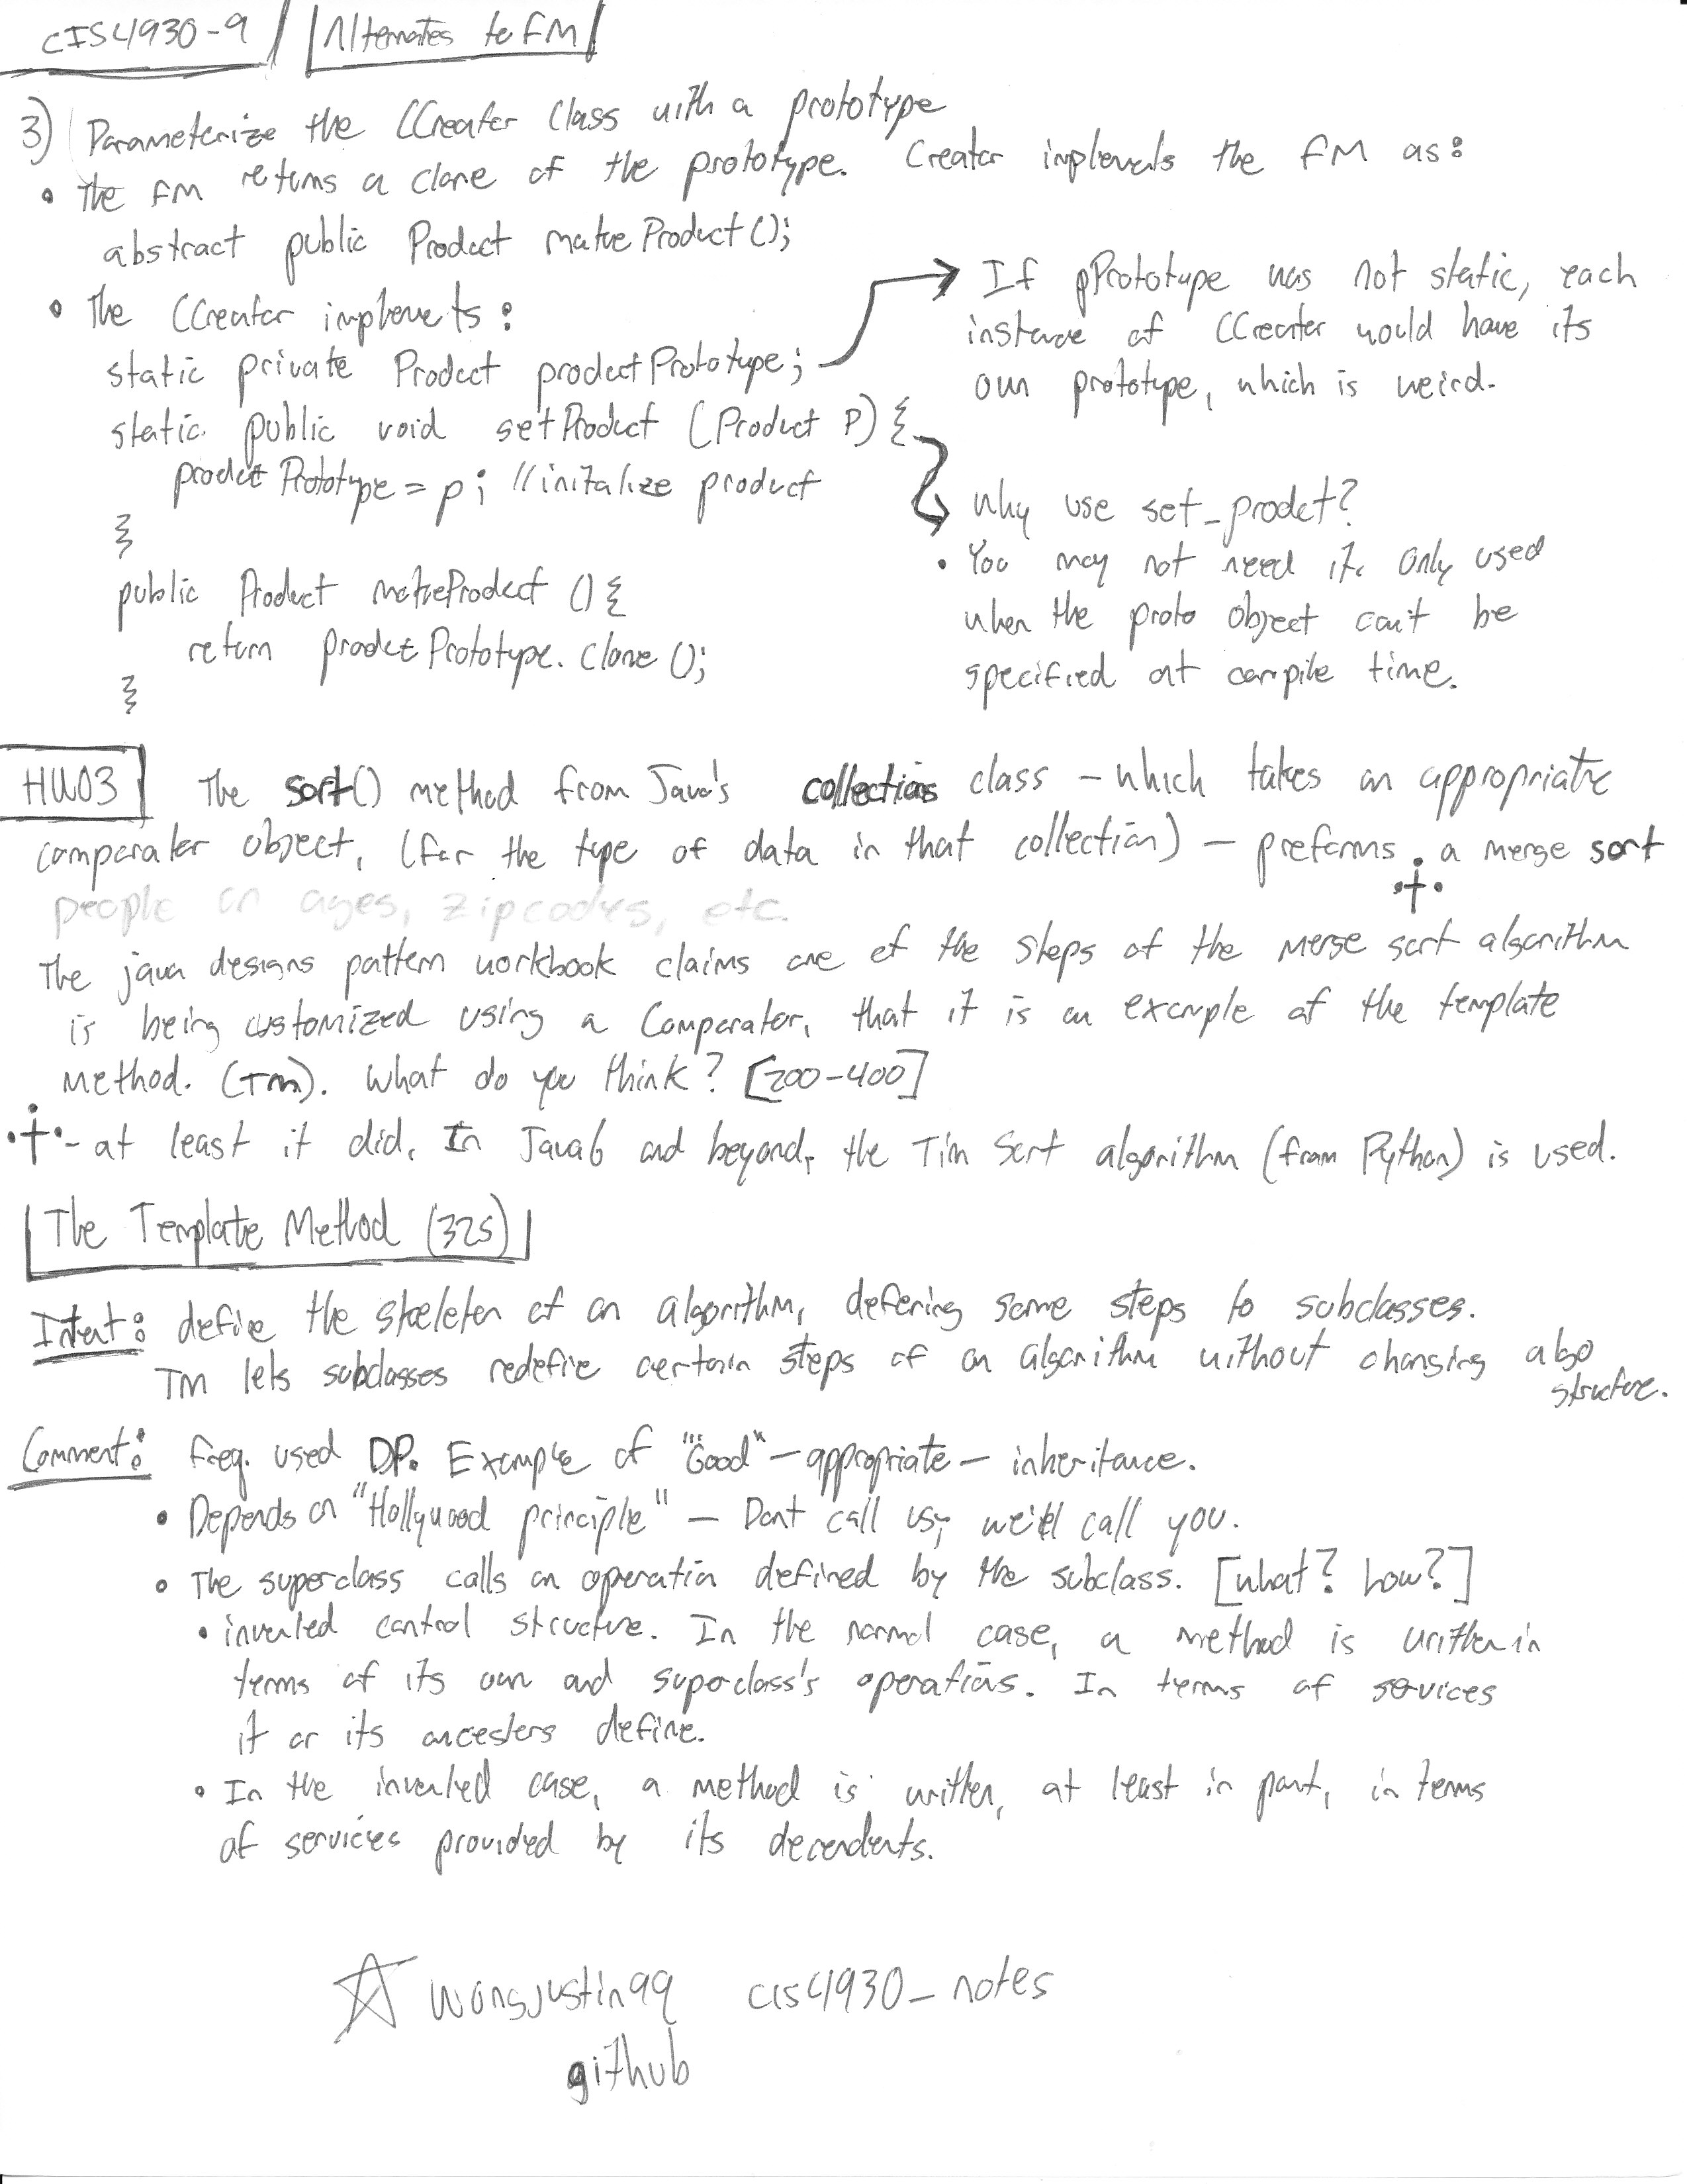 CIS4930-9 Alternates to FM
3) Parameterize the CCreator Class with a prototype
• The FM returns a clone of the prototype. Creator implements the FM as:
abstract public Product makeProduct();
• The CCreator implements:
static private Product productPrototype;
static public void setProduct (Product P) {
productPrototype = p; //initalize product
}
public Product makeProduct () {
return productPrototype. Clone ();
}
If pPrototype was not static, each
instance of CCreator would have its
own prototype, which is weird.
Why use set_product?
• You may not need it. Only used
when the proto object can't be
specified at compile time.
HW03 The sort() method from Java's collections class - which takes an appropriate
comparater object, (for the type of data in that collection) - preforms a merge sort
people on ages, zipcodes, etc.
The java designs pattern workbook claims one of the steps of the merge sort algorithm
is being customized using a Comparator, that it is an example of the template
method. (TM). What do you think? [200-400]
- at least it did. In Java6 and beyond, the Tim Sort algorithm (from Python) is used.
The Template Method (325)
Intent: define the skeleton of an algorithm, defering some steps to subclasses.
TM lets subclasses redefine certain steps of an algorithm without changing algo
structure.
Comment: freq. used DP. Example of "Good" - appropriate - inheritance.
• Depends on "Hollywood principle" - Dont call us, we'll call you.
• The superclass calls an operation defined by the subclass. [what? how?]
• inverted control structure. In the normal case, a method is written in
terms of its own and superclass's operations. In terms of services
it or its ancesters define.
• In the inverted case, a method is written, at least in part, in terms
of services provided by its decendents.
wongjustin99 cis4930_notes
github